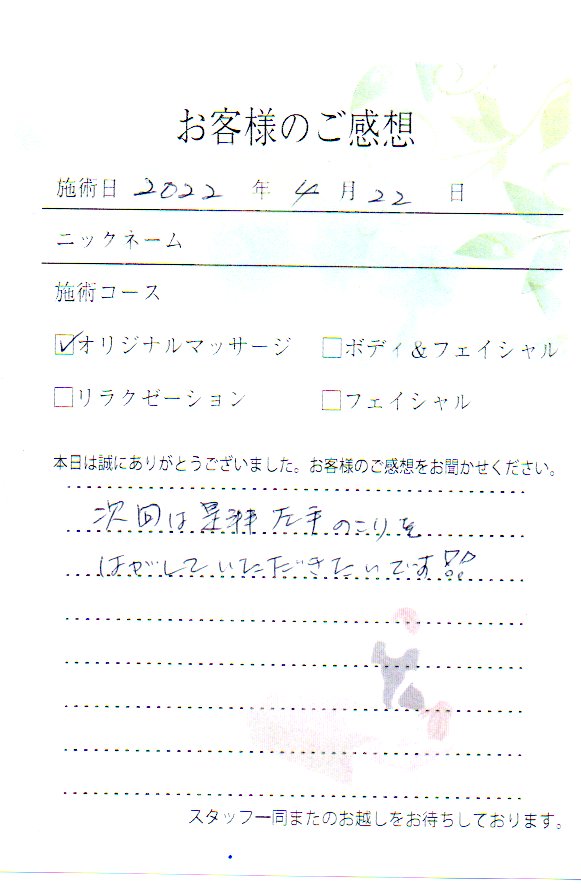 お客様のご感想
施術日 2022 年 4 月 22 日
ニックネーム
施術コース
☑オリジナルマッサージ □ボディ&フェイシャル
□リラクゼーション □フェイシャル
本日は誠にありがとうございました。お客様のご感想をお聞かせください。
次回は 左手のこりを
はがしていただきたいです!!
スタッフ一同またのお越しをお待ちしております。